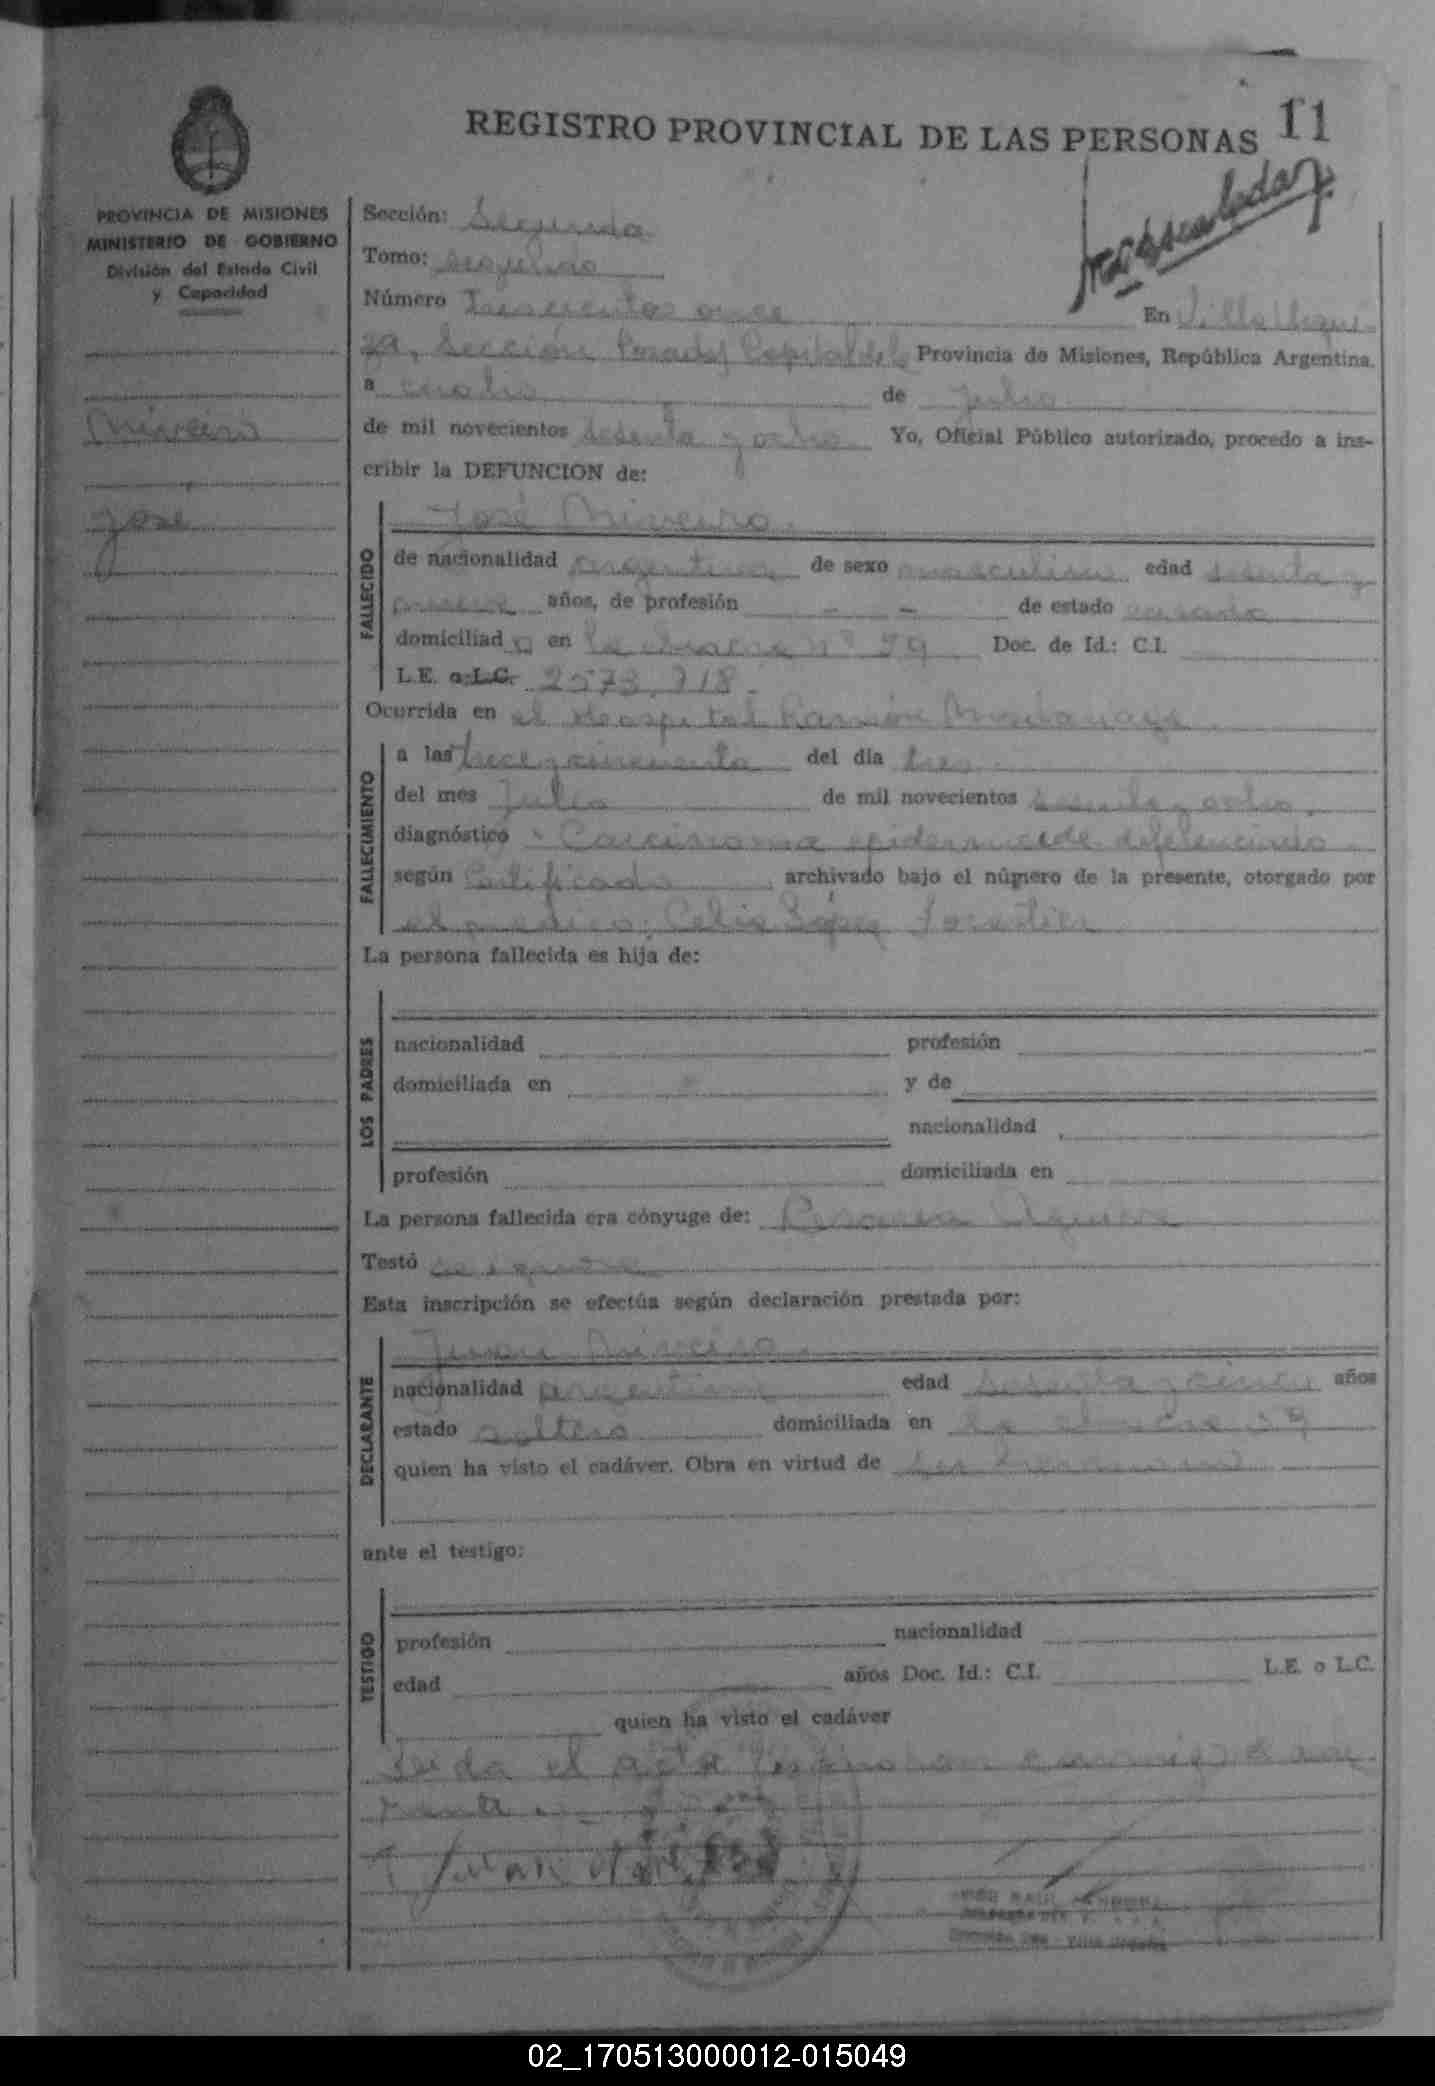 REGISTRO PROVINCIAL DE LAS PERSONAS 11
PROVINCIA DE MISIONES
MINISTERIO DE GOBIERNO
División del Estado Civil
y Capacidad
Mineiro
José
Sección: Segunda
Tomo: segundo
Número Trescientos once En Villa Urqui-
za, Sección Posadas Capital de la Provincia de Misiones, República Argentina,
a cuatro de Julio
de mil novecientos sesenta y ocho Yo, Oficial Público autorizado, procedo a ins-
cribir la DEFUNCION de:
José Mineiro
FALLECIDO
de nacionalidad argentina de sexo masculino edad sesenta y
nueve años, de profesión - - de estado casado
domiciliado en la chacra nº 79 Doc. de Id.: C.I.
L.E. o L.C. 2573.718.
Ocurrida en el Hospital Ramón Madariaga
FALLECIMIENTO
a las trece y cincuenta del día tres
del mes Julio de mil novecientos sesenta y ocho.
diagnóstico Carcinoma
según Certificado archivado bajo el número de la presente, otorgado por
el médico: López Forestier
La persona fallecida es hija de:
LOS PADRES
nacionalidad profesión
domiciliada en y de
nacionalidad
profesión domiciliada en
La persona fallecida era cónyuge de:
Testó se ignora
Esta inscripción se efectúa según declaración prestada por:
Juan Mineiro
DECLARANTE
nacionalidad argentina edad sesenta y cinco años
estado soltero domiciliada en la chacra 79
quien ha visto el cadáver. Obra en virtud de ser hermano
ante el testigo:
TESTIGO
profesión nacionalidad
edad años Doc. Id.: C.I. L.E. o L.C.
quien ha visto el cadáver
Leida el acta la firman conmigo
Juan
02_170513000012-015049